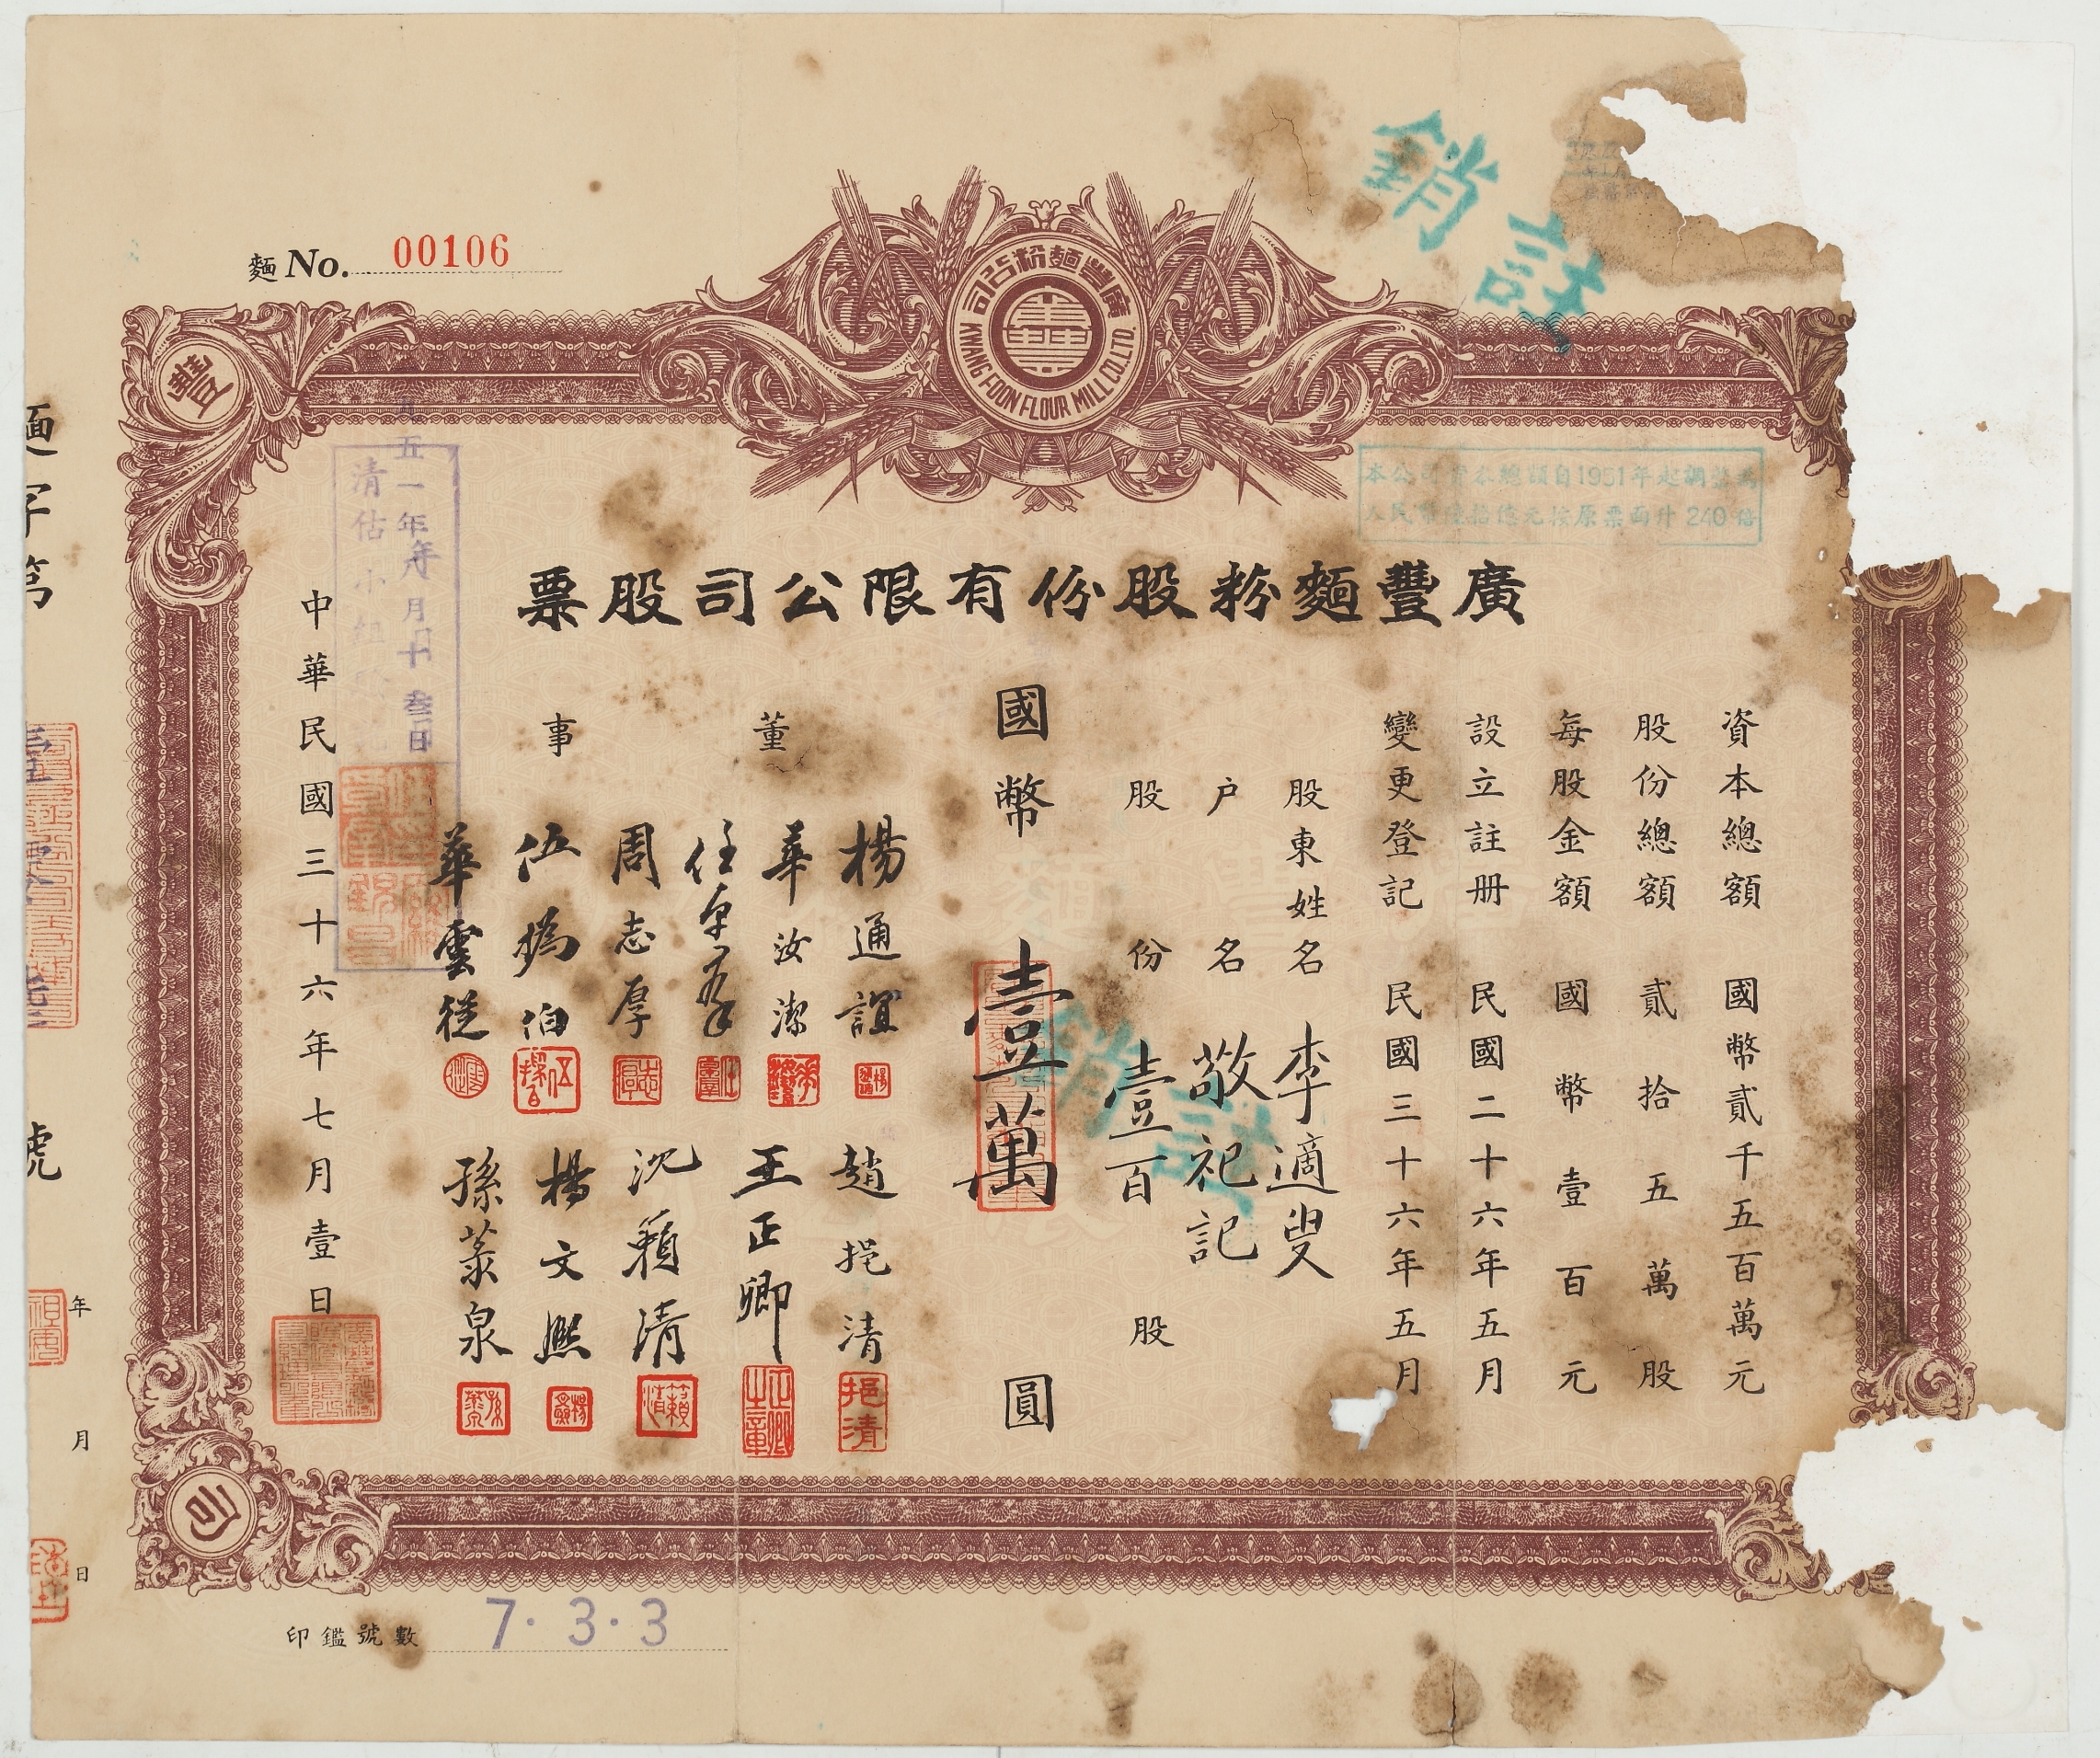 麵 No. 00106
廣豐麵粉公司
KWANG FOON FLOUR MILL CO. LTD.
豐
司
註銷
本公司資本總額自1951年起調整為
人民幣陸拾億元按原票面升240倍
廣豐麵粉股份有限公司股票
資本總額 國幣貳千五百萬元
股份總額 貳拾五萬股
每股金額 國幣壹百元
設立註册 民國二十六年五月
變更登記 民國三十六年五月
股東姓名 李適叟
户名 敬祀記
股份 壹百股
國幣 壹萬圓
註銷
董事
楊通誼
華汝潔
周志厚
華雲從
趙挹清
王正卿
沈籟清
楊文熙
中華民國三十六年七月壹日
五一年 月 日
清估小組
挹清
麵字第 號
年 月 日
印鑑號數 7·3·3